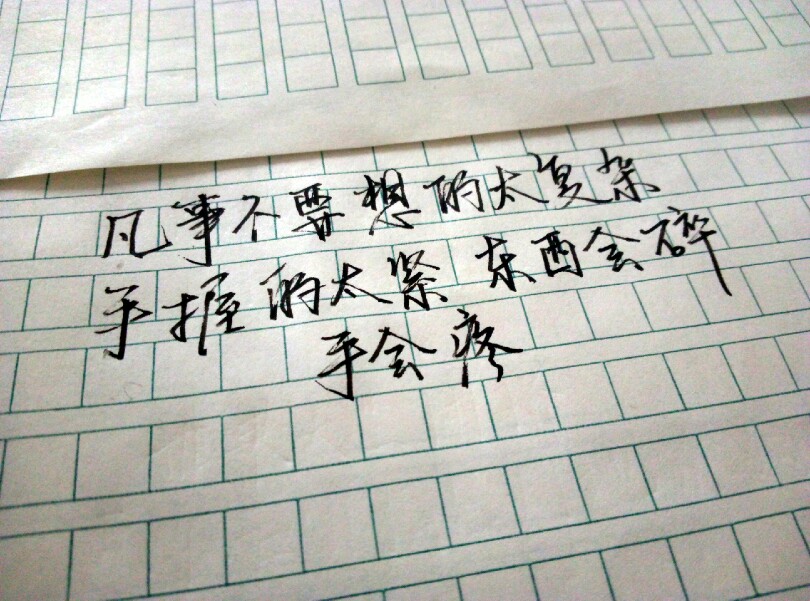 凡事不要想的太复杂
手握的太紧 东西会碎
手会疼